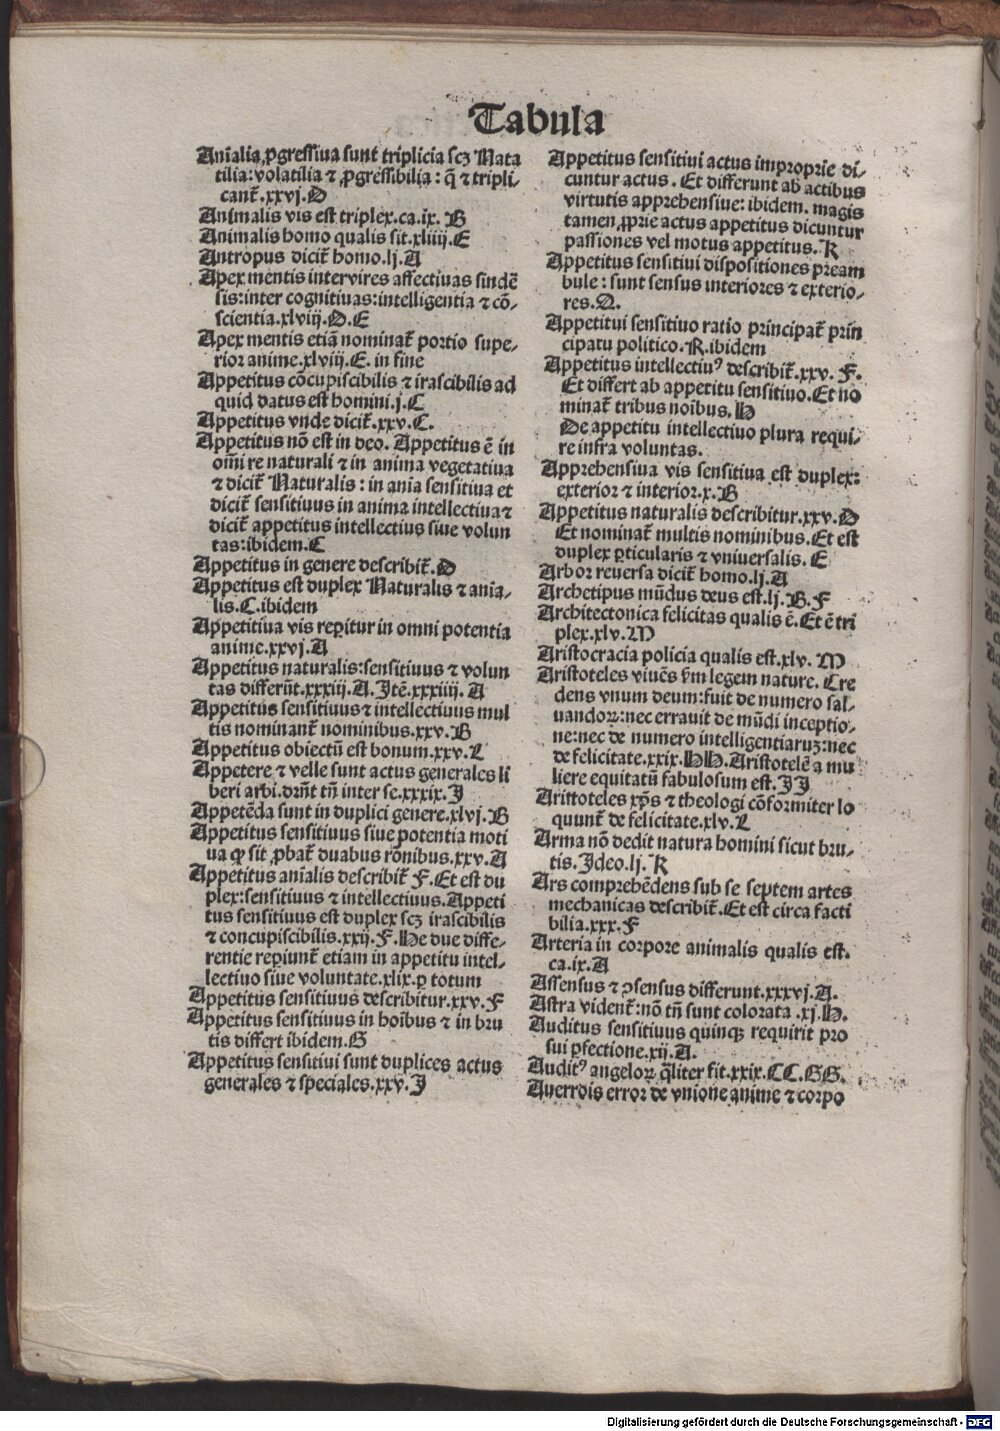 Tabula
Ani͂alia ꝓgressiua sunt triplicia scꝫ Nata
tilia: volatilia ⁊ ꝓgressibilia: q̄ ⁊ tripli-
cant̄.xxvj.D
Animalis vis est triplex.ca.ix. B
Animalis homo qualis sit.xliiij.E
Antropus dicit̄ homo.lj.A
Apex mentis inter vires affectiuas sindē
sis: inter cognitiuas: intelligentia ⁊ cō-
scientia.xlviij.D.E
Apex mentis etiā nominat̄ portio supe-
rior anime.xlviij.E. in fine
Appetitus cōcupiscibilis ⁊ irascibilis ad
quid datus est homini.j.C
Appetitus vnde dicit̄.xxv.C.
Appetitus nō est in deo. Appetitus ē in
om̄i re naturali ⁊ in anima vegetatiua
⁊ dicit̄ Naturalis: in ani͂a sensitiua et
dicit̄ sensitiuus in anima intellectiua ⁊
dicit̄ appetitus intellectius siue volun
tas: ibidem.C
Appetitus in genere describit̄.D
Appetitus est duplex Naturalis ⁊ ani͂a-
lis.C. ibidem
Appetitiua vis reꝑitur in omni potentia
anime.xxvj.A
Appetitus naturalis: sensitiuus ⁊ volun
tas differūt.xxxiij.A. Itē.xxxiiij. A
Appetitus sensitiuus ⁊ intellectiuus mul
tis nominant̄ nominibus.xxv.B
Appetitus obiectū est bonum.xxv.L
Appetere ⁊ velle sunt actus generales li
beri arbi. drn̄t tn̄ inter se.xxxix.J
Appetēda sunt in duplici genere.xlvj.B
Appetitus sensitiuus siue potentia moti
ua ꝙ sit ꝓbat̄ duabus rōnibus.xxv.A
Appetitus ani͂alis describit̄ F. Et est du
plex: sensitiuus ⁊ intellectiuus. Appeti
tus sensitiuus est duplex scꝫ irascibilis
⁊ concupiscibilis.xxij.F. He due diffe-
rentie reꝑiunt̄ etiam in appetitu intel-
lectiuo siue voluntate.xlix.ꝑ totum
Appetitus sensitiuus describitur.xxv.F
Appetitus sensitiuus in hoi͂bus ⁊ in bru
tis differt ibidem.G
Appetitus sensitiui sunt duplices actus
generales ⁊ speciales.xxv.J
Appetitus sensitiui actus improprie di-
cuntur actus. Et differunt ab actibus
virtutis apprehensiue: ibidem. magis
tamen ꝓprie actus appetitus dicuntur
passiones vel motus appetitus. K
Appetitus sensitiui dispositiones pream
bule: sunt sensus interiores ⁊ exterio-
res.Q.
Appetitui sensitiuo ratio principat̄ prin
cipatu politico.R. ibidem
Appetitus intellectiuꝰ describit̄.xxv. F.
Et differt ab appetitu sensitiuo. Et no
minat̄ tribus noi͂bus. H
De appetitu intellectiuo plura requi-
re infra voluntas.
Apprehensiua vis sensitiua est duplex:
exterior ⁊ interior.x.B
Appetitus naturalis describitur.xxv.D
Et nominat̄ multis nominibus. Et est
duplex ꝑticularis ⁊ vniuersalis. E
Arbor reuersa dicit̄ homo.lj.A
Archetipus mūdus deus est.lj.B.F
Architectonica felicitas qualis ē. Et ē tri
plex.xlv.M
Aristocracia policia qualis est.xlv. M
Aristoteles viuēs ẜm legem nature. Cre
dens vnum deum: fuit de numero sal-
uandoꝝ: nec errauit de mūdi inceptio-
ne: nec de numero intelligentiaruꝫ: nec
de felicitate.xxix.HH. Aristotelē a mu
liere equitatū fabulosum est. JJ
Aristoteles xp̄s ⁊ theologi cōformiter lo
quunt̄ de felicitate.xlv.L
Arma nō dedit natura homini sicut bru-
tis. Ideo.lj.K
Ars comprehēdens sub se septem artes
mechanicas describit̄. Et est circa facti
bilia.xxx.F
Arteria in corpore animalis qualis est.
ca.ix.A
Assensus ⁊ ↄsensus differunt.xxxvj.A.
Astra vident̄: nō tn̄ sunt colorata .xj.H.
Auditus sensitiuus quinqꝫ requirit pro
sui ꝑfectione.xij.A.
Auditꝰ angeloꝝ q̄liter fit.xxix.CC.GG.
Auerrois error de vnione anime ⁊ corpo
Digitalisierung gefördert durch die Deutsche Forschungsgemeinschaft - DFG